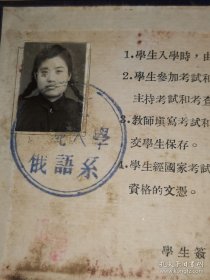 1.學生入學時，由
2.學生參加考試和
主持考試和考查
3.教師填寫考試和
交學生保存。
4.學生經國家考試
資格的文憑。
學生簽
大學
俄語系